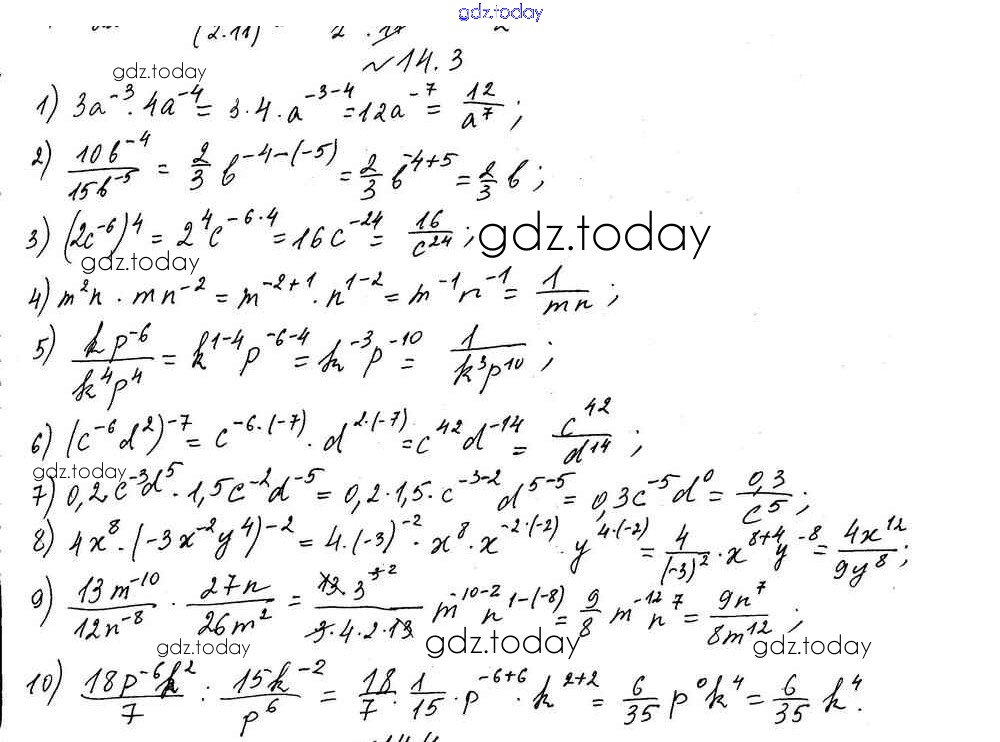 gdz.today
(2.11)
№14.3
gdz.today
1) 3a⁻³·4a⁻⁴ = 3·4·a⁻³⁻⁴ = 12a⁻⁷ = 12/a⁷;
2) 10b⁻⁴/15b⁻⁵ = 2/3 b⁻⁴⁻⁽⁻⁵⁾ = 2/3 b⁻⁴⁺⁵ = 2/3 b;
3) (2c⁻⁶)⁴ = 2⁴c⁻⁶·⁴ = 16c⁻²⁴ = 16/c²⁴; gdz.today
gdz.today
4) m²n · mn⁻² = m⁻²⁺¹ · n¹⁻² = m⁻¹n⁻¹ = 1/mn;
5) kp⁻⁶/k⁴p⁴ = k¹⁻⁴p⁻⁶⁻⁴ = k⁻³p⁻¹⁰ = 1/k³p¹⁰;
6) (c⁻⁶d²)⁻⁷ = c⁻⁶·⁽⁻⁷⁾ · d²·⁽⁻⁷⁾ = c⁴²d⁻¹⁴ = c⁴²/d¹⁴;
gdz.today
7) 0,2c⁻³d⁵ · 1,5c⁻²d⁻⁵ = 0,2·1,5·c⁻³⁻² d⁵⁻⁵ = 0,3c⁻⁵d⁰ = 0,3/c⁵;
8) 4x⁸·(-3x⁻²y⁴)⁻² = 4·(-3)⁻²·x⁸·x⁻²·⁽⁻²⁾·y⁴·⁽⁻²⁾ = 4/(-3)²·x⁸⁺⁴y⁻⁸ = 4x¹²/9y⁸;
9) 13m⁻¹⁰/12n⁻⁸ · 27n/26m² = 13·3³⁻²/3·4·2·13 m⁻¹⁰⁻²n¹⁻⁽⁻⁸⁾ = 9/8 m⁻¹²n⁷ = 9n⁷/8m¹²;
gdz.today gdz.today gdz.today
10) 18p⁻⁶k²/7 : 15k⁻²/p⁶ = 18/7·1/15·p⁻⁶⁺⁶·k²⁺² = 6/35 p⁰k⁴ = 6/35 k⁴.